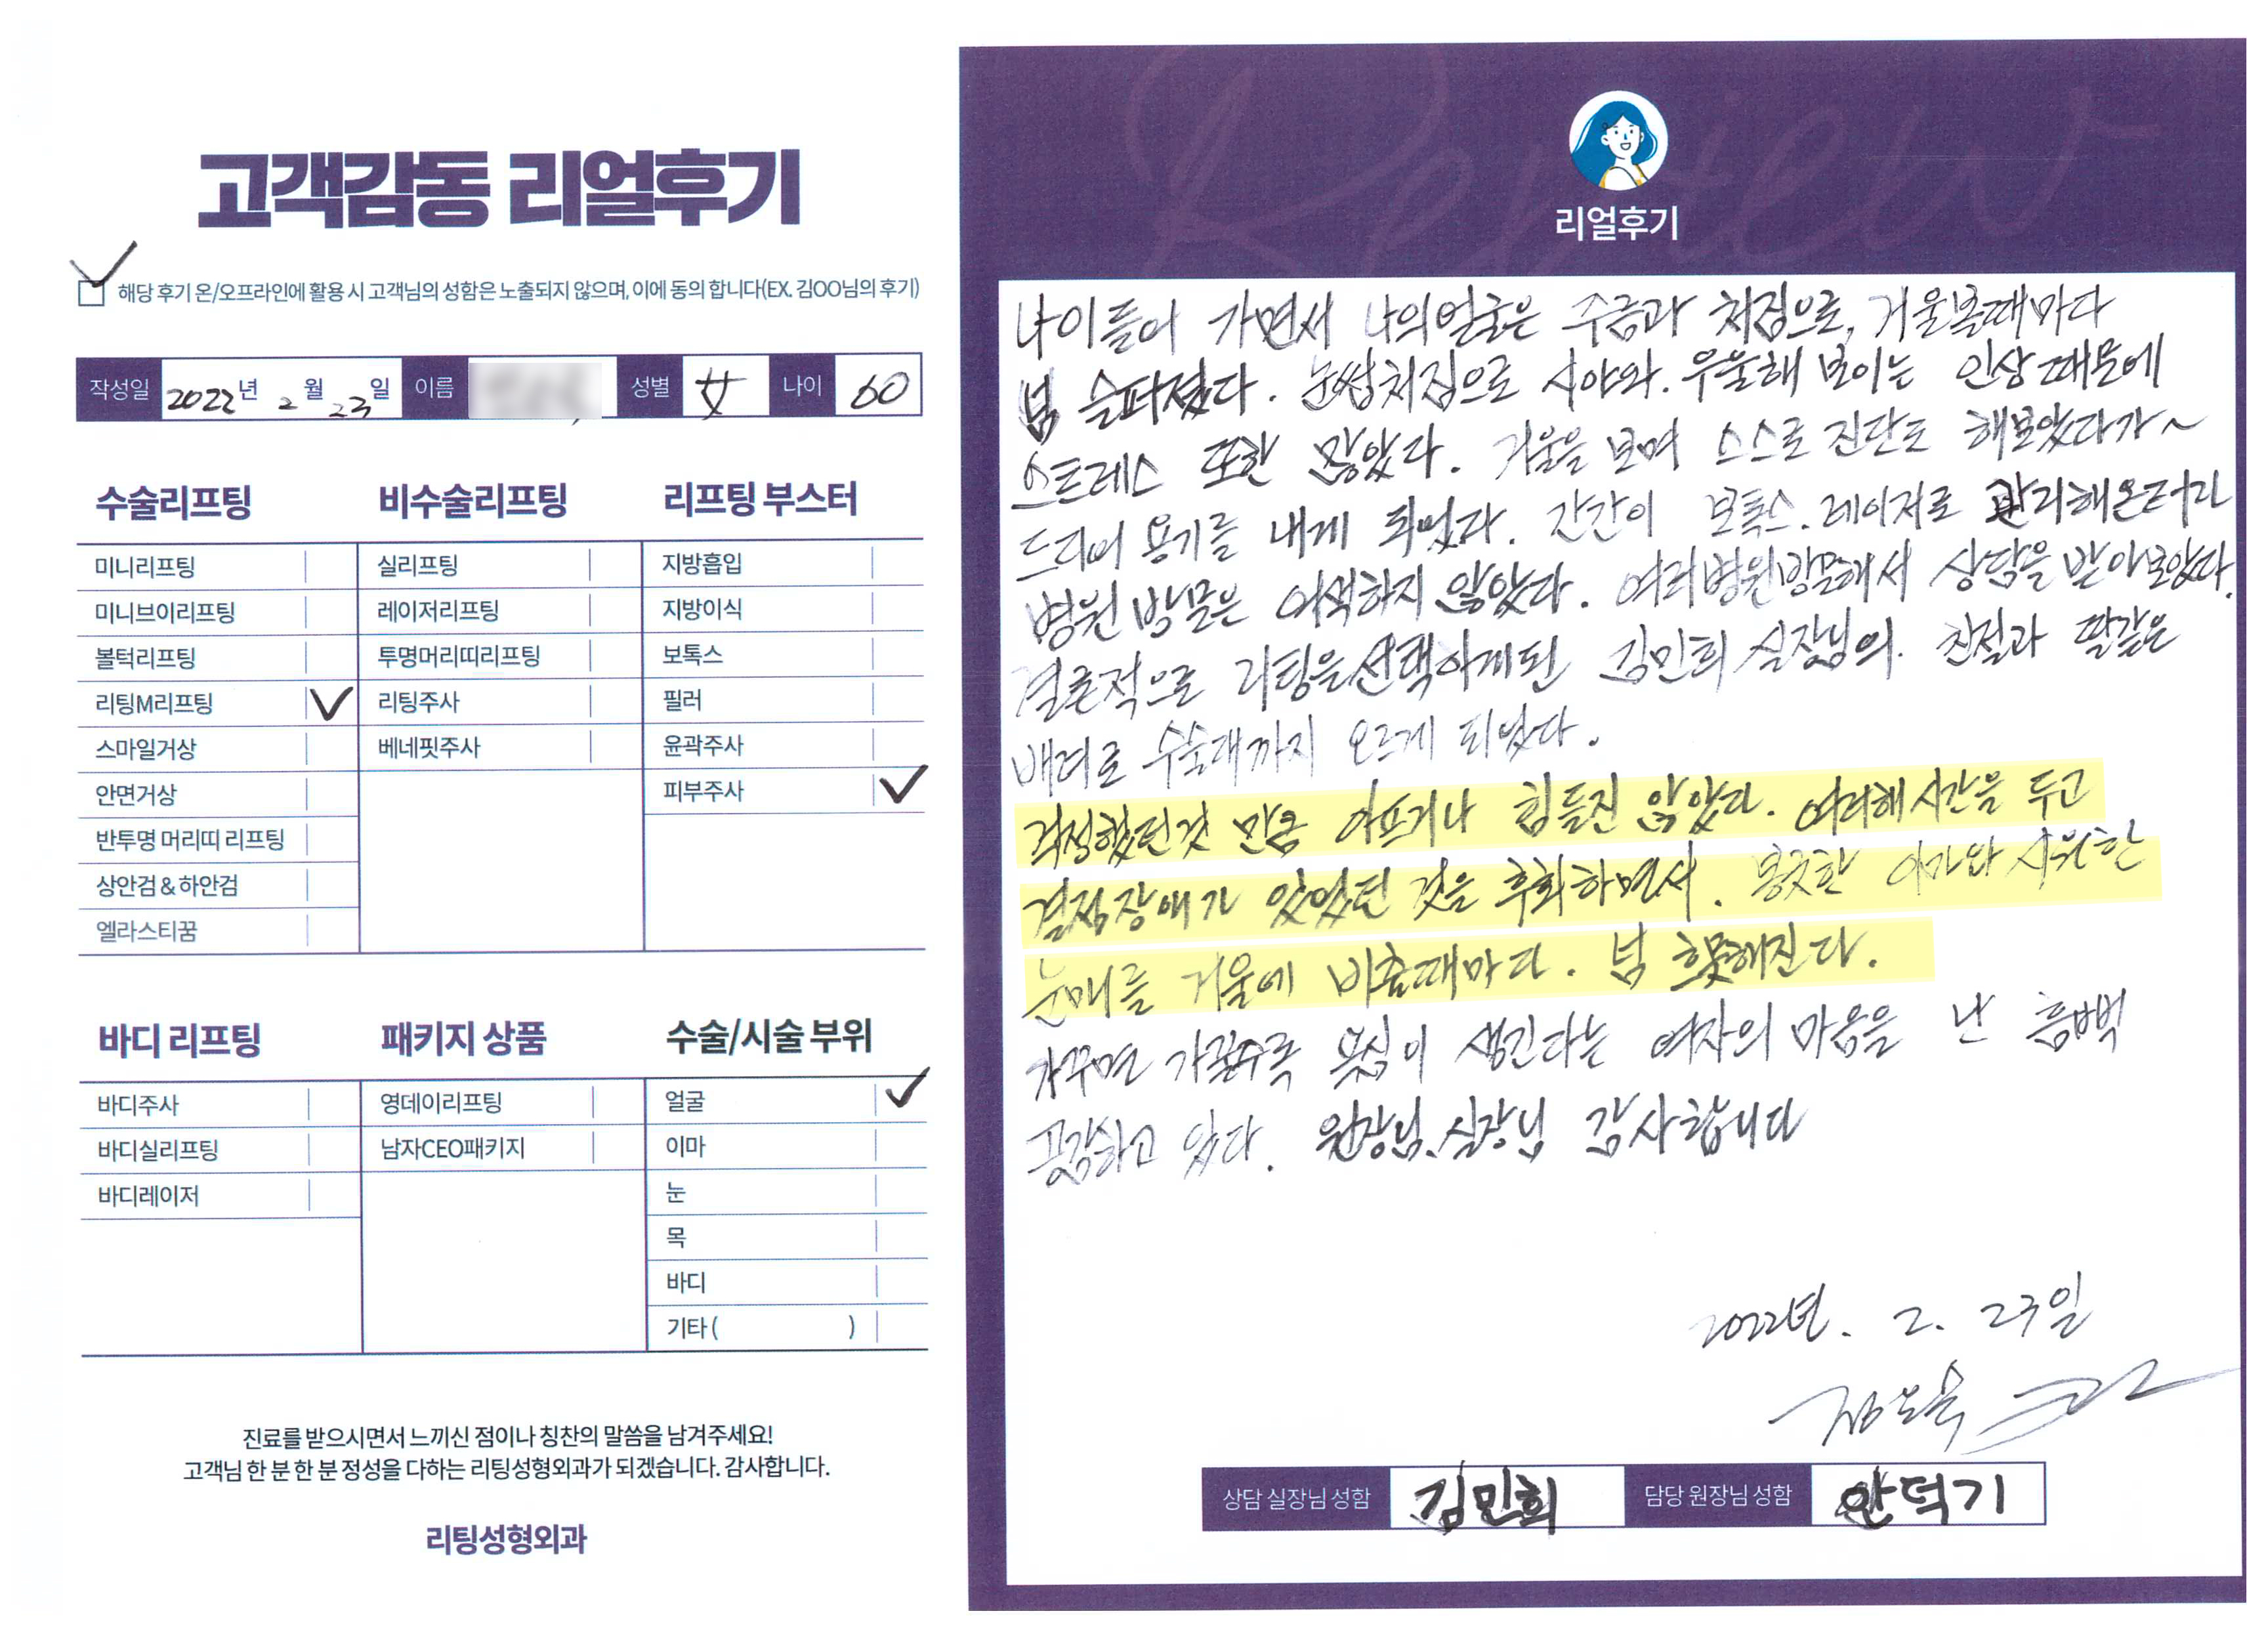 고객감동 리얼후기
해당 후기 온/오프라인에 활용 시 고객님의 성함은 노출되지 않으며, 이에 동의 합니다(EX. 김OO님의 후기)
작성일 2022년 2월 23일 이름 성별 女 나이 60
수술리프팅
미니리프팅
미니브이리프팅
볼턱리프팅
리팅M리프팅
스마일거상
안면거상
반투명 머리띠 리프팅
상안검 & 하안검
엘라스티꿈
비수술리프팅
실리프팅
레이저리프팅
투명머리띠리프팅
리팅주사
베네핏주사
리프팅 부스터
지방흡입
지방이식
보톡스
필러
윤곽주사
피부주사
바디 리프팅
바디주사
바디실리프팅
바디레이저
패키지 상품
영데이리프팅
남자CEO패키지
수술/시술 부위
얼굴
이마
눈
목
바디
기타 ( )
진료를 받으시면서 느끼신 점이나 칭찬의 말씀을 남겨주세요!
고객님 한 분 한 분 정성을 다하는 리팅성형외과가 되겠습니다. 감사합니다.
리팅성형외과
Review
리얼후기
나이들어 가면서 나의얼굴은 주금과 처짐으로, 거울볼때마다
넘 슬퍼졌다. 눈썹처짐으로 시야와. 우울해 보이는 인상때문에
스트레스 또한 많았다. 거울을 보며 스스로 진단도 해보았다가~
드디어 용기를 내게 되었다. 간간이 보톡스. 레이저로 관리해온터라
병원 방문은 어색하지 않았다. 여러병원방문해서 상담을 받아보았다.
결론적으로 리팅을선택하게된 김민희 실장님의. 친절과 딸같은
배려로 수술대까지 오르게 되었다.
걱정했던것 만큼 아프거나 힘들진 않았다. 여러해 시간을 두고
결정장애가 있었던 것을 후회하면서. 봉긋한 이마와 시원한
눈매를 거울에 비출때마다. 넘 흐뭇해진다.
가꾸면 가꿀수록 욕심이 생긴다는 여자의 마음을 난 흠뻑
공감하고 있다. 원장님, 실장님 감사합니다
2022년. 2. 23일
상담 실장님 성함 김민희 담당 원장님 성함 안덕기